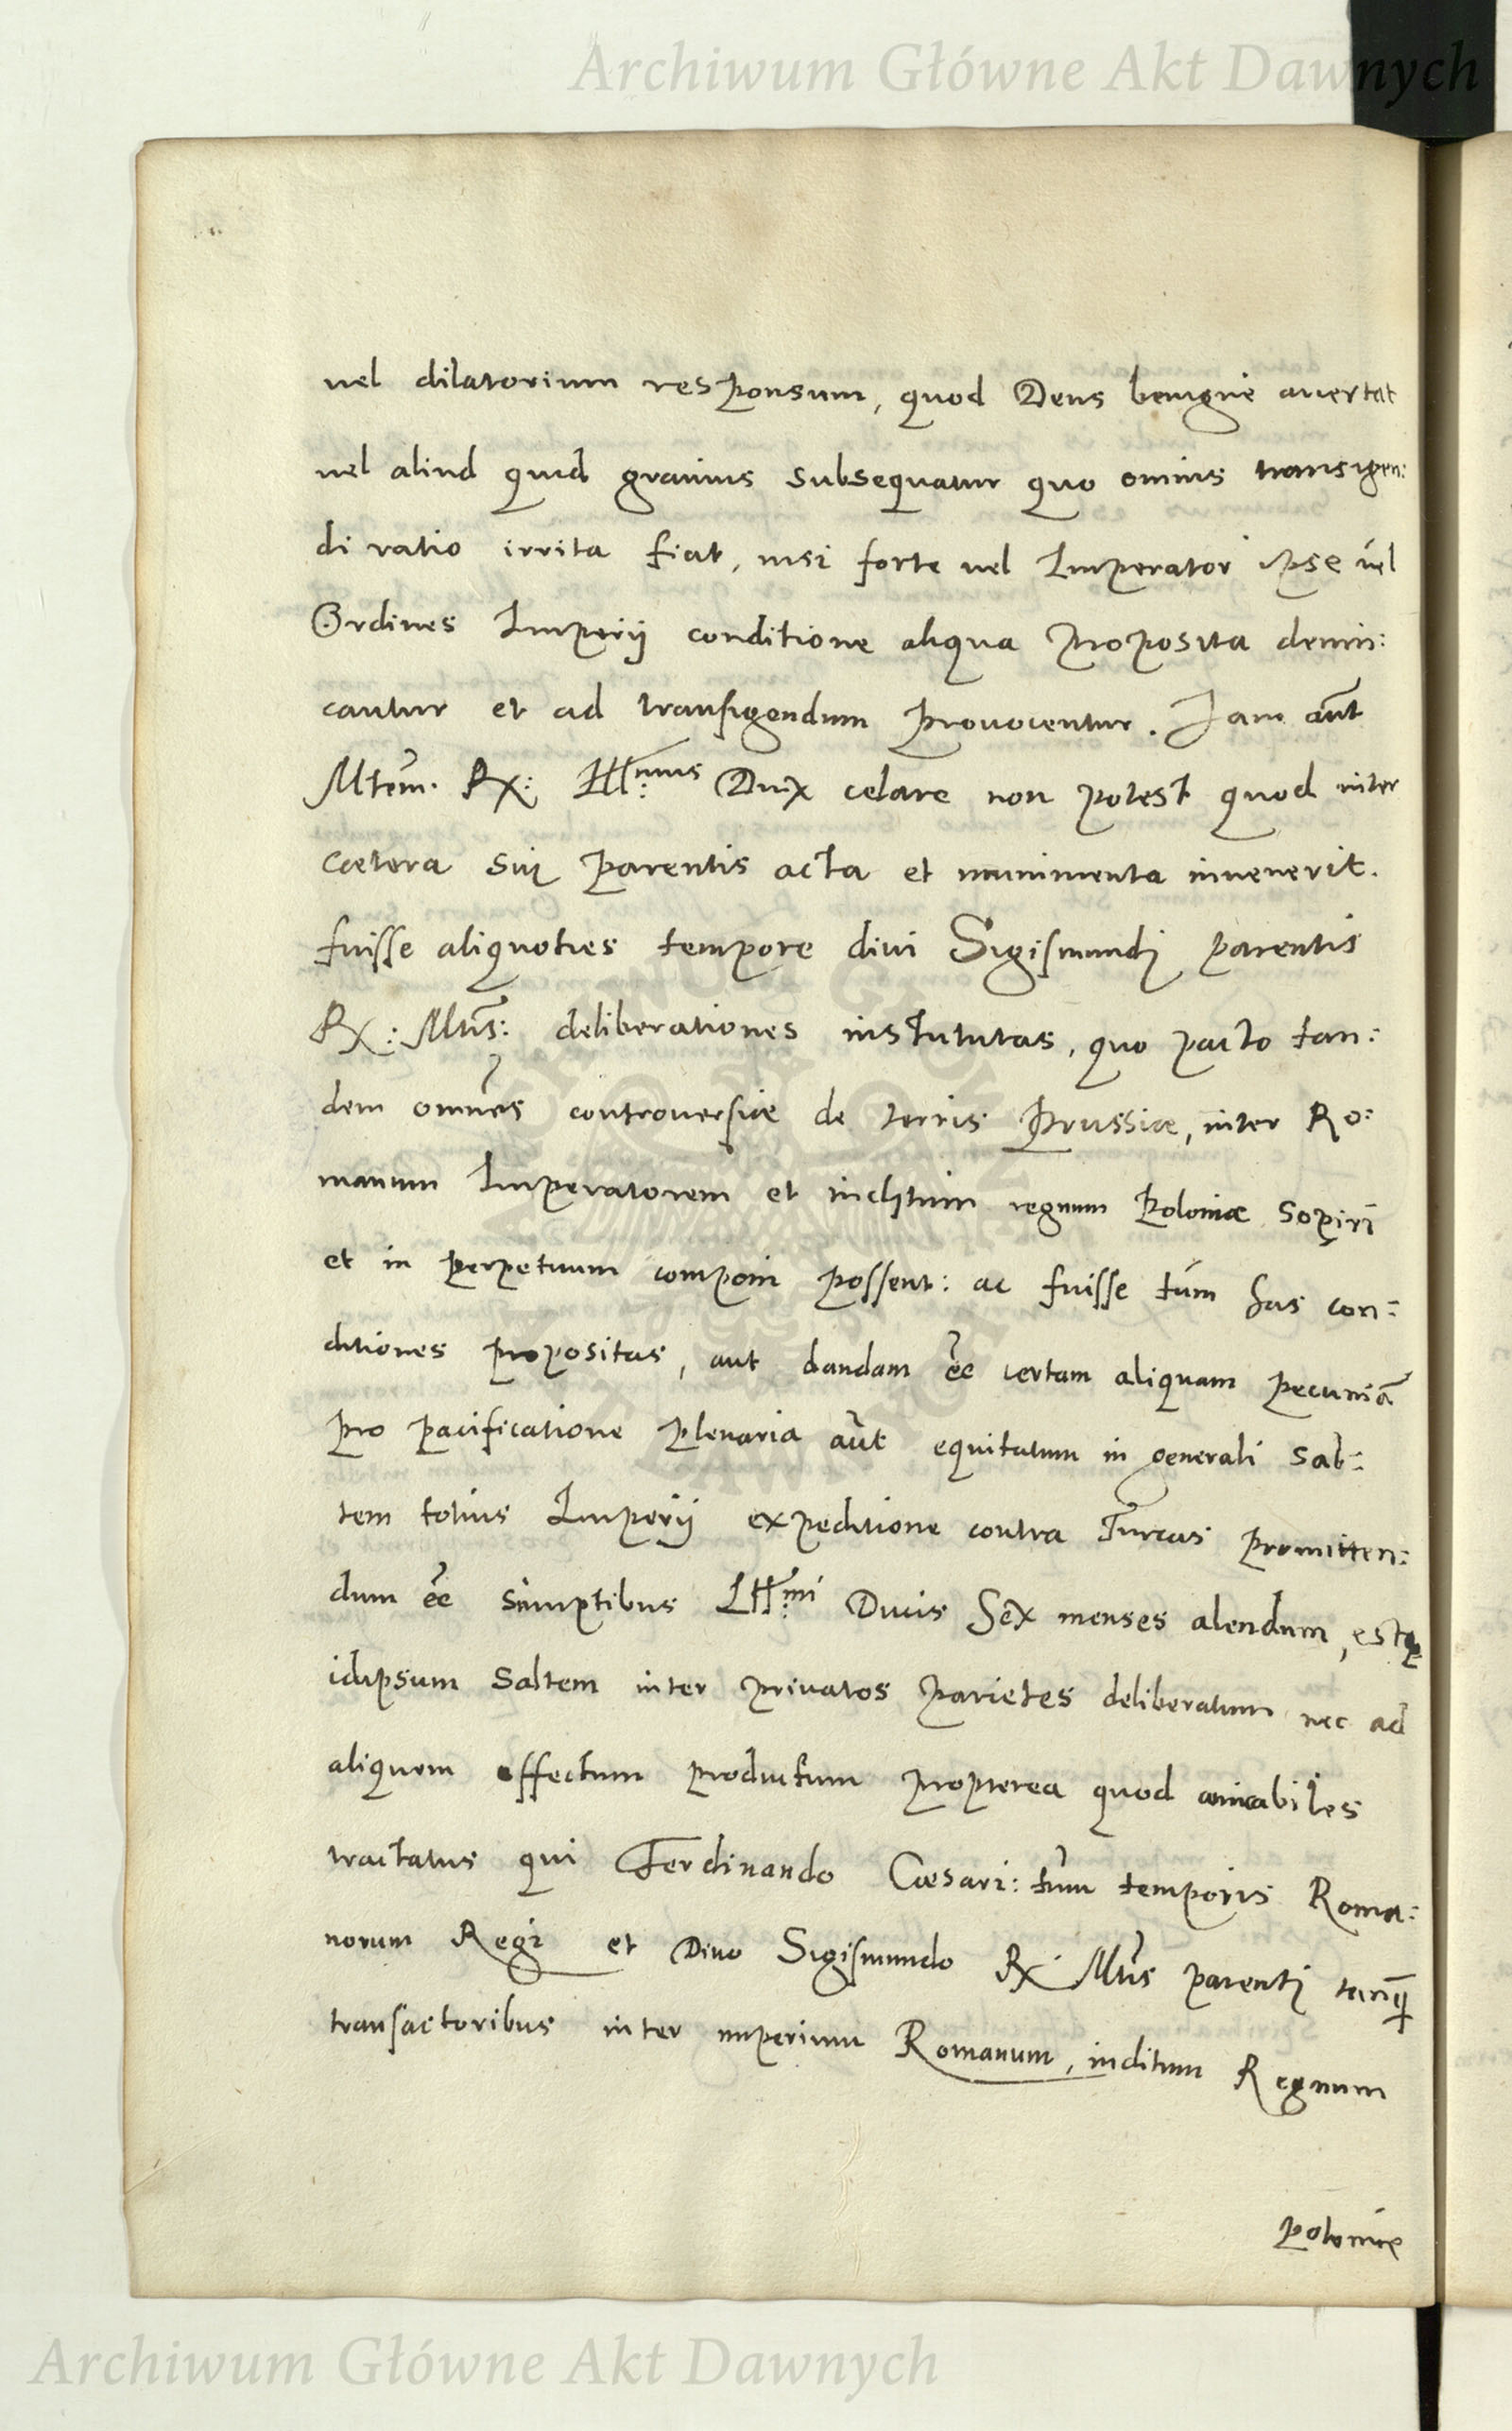 Archiwum Główne Akt Dawnych
uel dilatorium responsum, quod Deus benigne auertat
uel aliud quid grauius subsequatur quo omnis transigen:
di ratio irrita fiat, nisi forte uel Imperator ipse uel
Ordines Imperij conditione aliqua proposita demul:
cantur et ad transigendum prouocentur. Jam aut
Mtem. Rx: Illmus Dux celare non potest quod inter
cætera sui parentis acta et munimenta inuenerit.
fuisse aliquoties tempore diui Sigismundi parentis
Rx: Mtis: deliberationes institutas, quo pacto tan:
dem omnes controuersiæ de terris Prussiæ, inter Ro:
manum Imperatorem et inclitum regnum Poloniæ sopiri
et in perpetuum componi possent: ac fuisse tum has con:
ditiones propositas, aut dandam ee certam aliquam pecuniā
pro pacificatione plenaria aut equitatum in generali sal:
tem totius Imperij expeditione contra Turcas promitten:
dum ee sumptibus Illmi Ducis Sex menses alendum, estq
idipsum saltem inter priuatos parietes deliberatum nec ad
aliquem effectum productum propterea quod amicabiles
tractatus qui Ferdinando Cæsari: tum temporis Roma:
norum Regi et Diuo Sigismundo Rx Mtis parenti tanq
transactoribus inter imperium Romanum, inclitum Regnum
Poloniæ
Archiwum Główne Akt Dawnych